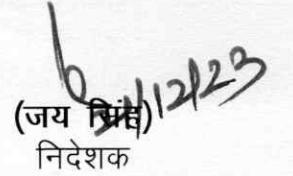 /12/23
(जय सिंह)
निदेशक